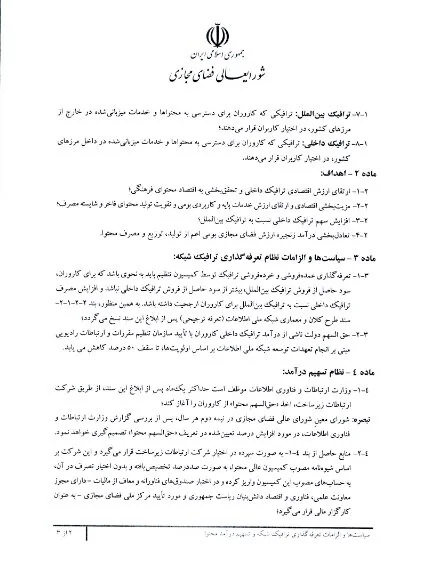 جمهوری اسلامی ایران
شورایعالی فضای مجازی
۱-۷- ترافیک بین‌الملل: ترافیکی که کاروران برای دسترسی به محتواها و خدمات میزبانی‌شده در خارج از
مرزهای کشور، در اختیار کاربران قرار می‌دهند؛
۱-۸- ترافیک داخلی: ترافیکی که کاروران برای دسترسی به محتواها و خدمات میزبانی‌شده در داخل مرزهای
کشور، در اختیار کاربران قرار می‌دهند.
ماده ۲ - اهداف:
۲-۱- ارتقای ارزش اقتصادی ترافیک داخلی و تحقق‌بخشی به اقتصاد محتوای فرهنگی؛
۲-۲- مزیت‌بخشی اقتصادی و ارتقای ارزش خدمات پایه و کاربردی بومی و تقویت تولید محتوای فاخر و شایسته مصرف؛
۲-۳- افزایش سهم ترافیک داخلی نسبت به ترافیک بین‌الملل؛
۲-۴- تعادل‌بخشی درآمد زنجیره ارزش فضای مجازی بومی اعم از تولید، توزیع و مصرف محتوا.
ماده ۳ - سیاست‌ها و الزامات نظام تعرفه‌گذاری ترافیک شبکه:
۳-۱- تعرفه‌گذاری عمده‌فروشی و خرده‌فروشی ترافیک توسط کمیسیون تنظیم باید به نحوی باشد که برای کاروران،
سود حاصل از فروش ترافیک بین‌الملل، بیشتر از سود حاصل از فروش ترافیک داخلی نباشد و افزایش مصرف
ترافیک داخلی نسبت به ترافیک بین‌الملل برای کاروران ارجحیت داشته باشد. به همین منظور، بند ۲-۲-۱-۲-
سند طرح کلان و معماری شبکه ملی اطلاعات (تعرفه ترجیحی) پس از ابلاغ این سند نسخ می‌گردد؛
۳-۲- حق السهم دولت ناشی از درآمد ترافیک داخلی کاروران با تأیید سازمان تنظیم مقررات و ارتباطات رادیویی
مبنی بر انجام تعهدات توسعه شبکه ملی اطلاعات بر اساس اولویت‌ها، تا سقف ۵۰ درصد کاهش می یابد.
ماده ٤ - نظام تسهیم درآمد:
٤-۱- وزارت ارتباطات و فناوری اطلاعات موظف است حداکثر یک‌ماه پس از ابلاغ این سند، از طریق شرکت
ارتباطات زیرساخت، اخذ «حق‌السهم محتوا» از کاروران را آغاز کند؛
تبصره: شورای معین شورای عالی فضای مجازی در نیمه دوم هر سال، پس از بررسی گزارش وزارت ارتباطات و
فناوری اطلاعات، در مورد افزایش درصد تعیین‌شده در تعریف «حق‌السهم محتوا»، تصمیم‌گیری خواهد نمود.
٤-۲- منابع حاصل از بند ٤-۱- به صورت سپرده در اختیار شرکت ارتباطات زیرساخت قرار می‌گیرد و این شرکت بر
اساس شیوه‌نامه مصوب کمیسیون عالی محتوا، به صورت صددرصد تخصیص‌یافته و بدون اختیار تصرف در آن،
به حساب‌های مصوب این کمیسیون واریز کرده و در اختیار صندوق‌های فناورانه و معاف از مالیات - دارای مجوز
معاونت علمی، فناوری و اقتصاد دانش‌بنیان ریاست جمهوری و مورد تأیید مرکز ملی فضای مجازی - به عنوان
کارگزار مالی قرار می‌گیرد؛
سیاست‌ها و الزامات تعرفه‌گذاری ترافیک شبکه و تسهیم درآمد محتوا
۲ از ۳